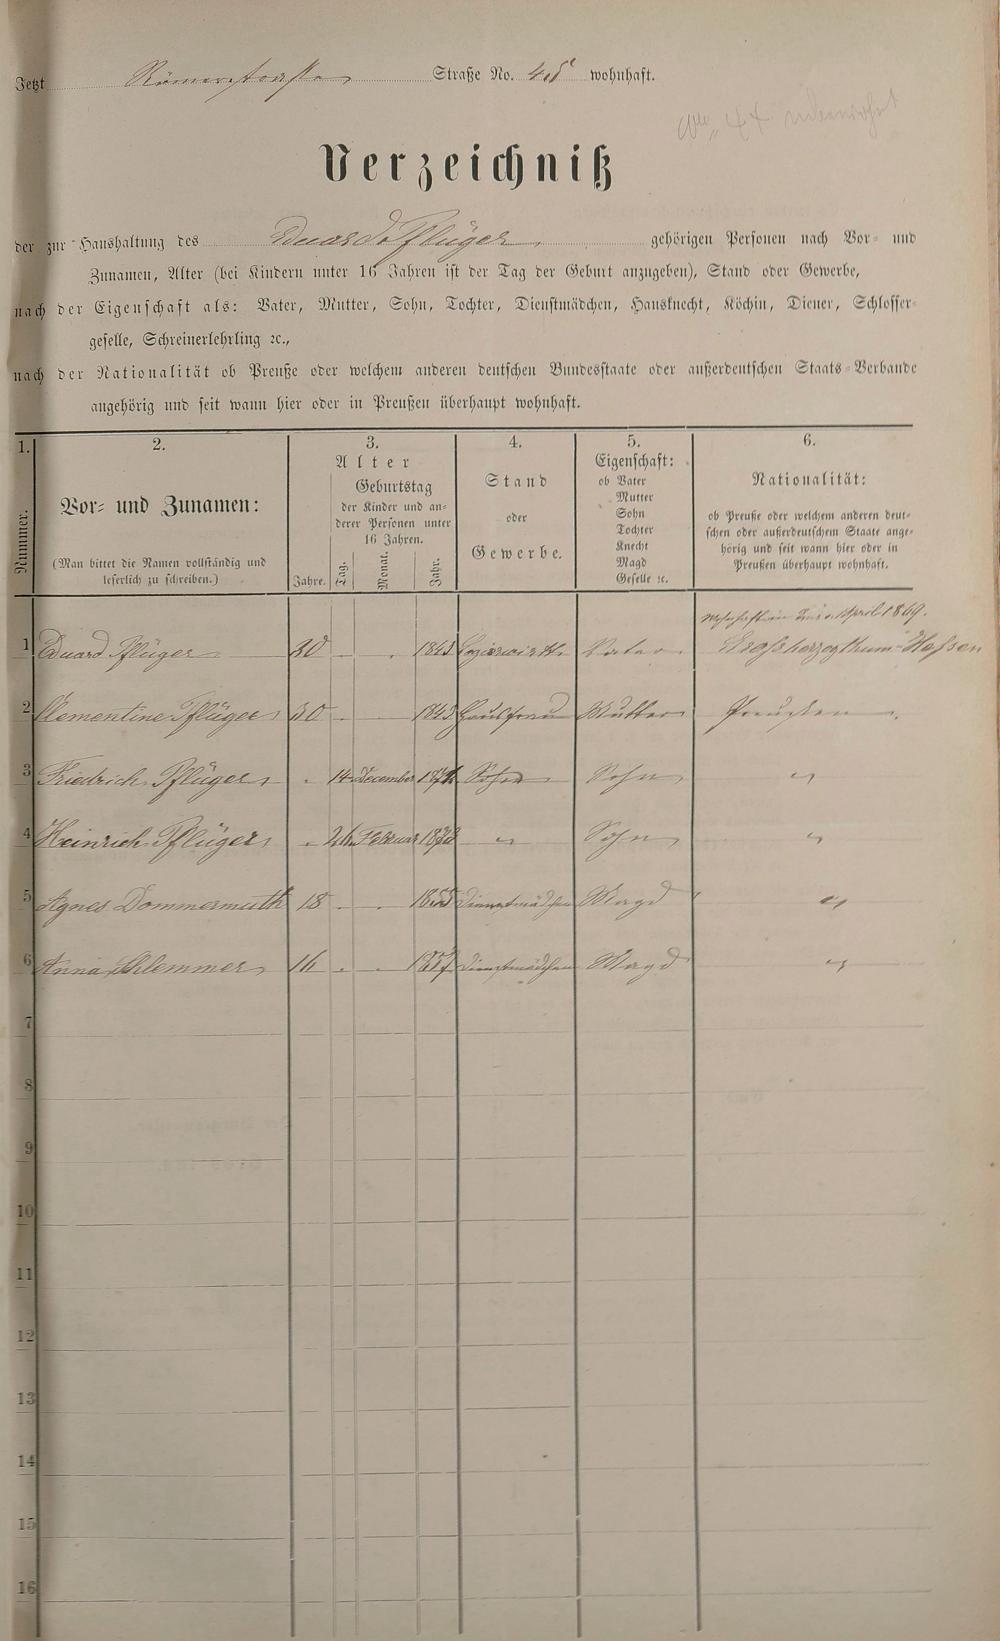 Jetzt Römerstrasse Straße No. 45 wohnhaft.
No 44
Verzeichniß
der zur Haushaltung des Eduard Pflüger gehörigen Personen nach Vor- und
Zunamen, Alter (bei Kindern unter 16 Jahren ist der Tag der Geburt anzugeben), Stand oder Gewerbe,
nach der Eigenschaft als: Vater, Mutter, Sohn, Tochter, Dienstmädchen, Hausknecht, Köchin, Diener, Schlosser-
geselle, Schreinerlehrling ꝛc.,
nach der Nationalität ob Preuße oder welchem anderen deutschen Bundesstaate oder außerdeutschen Staats-Verbande
angehörig und seit wann hier oder in Preußen überhaupt wohnhaft.
1. 2. 3. 4. 5. 6.
Nummer.
Vor- und Zunamen:
(Man bittet die Namen vollständig und
leserlich zu schreiben.)
Alter
Geburtstag
der Kinder und an-
derer Personen unter
16 Jahren.
Jahre. Tag. Monat. Jahr.
Stand
oder
Gewerbe.
Eigenschaft:
ob Vater
Mutter
Sohn
Tochter
Knecht
Magd
Geselle ꝛc.
Nationalität:
ob Preuße oder welchem anderen deut-
schen oder außerdeutschem Staate ange-
hörig und seit wann hier oder in
Preußen überhaupt wohnhaft.
April 1869.
1 Eduard Pflüger 30 - - 1843 Vater Großherzogthum-Hessen
2 Clementine Pflüger 30 - - 1843 Hausfrau Mutter Preußen
3 Friedrich Pflüger - 14 December 1871 Sohn Sohn "
4 Heinrich Pflüger - 26 Februar 1873 " Sohn "
5 Agnes Dommermuth 18 - - 1855 Dienstmädchen Magd "
6 Anna Schlemmer 16 - - 1857 Dienstmädchen Magd "
7
8
9
10
11
12
13
14
15
16